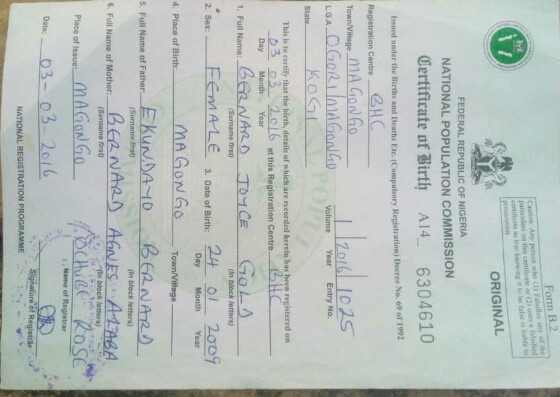 Form B.2
Caution: Any person who (1) Falsifies any of the
particulars on this certificate or (2) uses a falsified
certificate as true knowing it to be false is liable to
prosecution
FEDERAL REPUBLIC OF NIGERIA
NATIONAL POPULATION COMMISSION
ORIGINAL
Certificate of Birth A14 6304610
Issued under the Births and Deaths Etc. (Compulsory Registration) Decree No. 69 of 1992
Registration Centre BHC
Town/Village MAGONGO
L.G.A OGORI/MAGONGO 1 2016 1025
Volume Year Entry No.
State KOGI
This is to certify that the birth, details of which are recorded herein has been registered on
03 03 2016 at this Registration Centre BHC
Day Month Year
1. Full Name: BERNARD JOYCE GOLD
(Surname first) (In block letters)
2. Sex: FEMALE 3. Date of Birth: 24 01 2009
Day Month Year
4. Place of Birth: MAGONGO
Town/Village
5. Full Name of Father: EKUNDAYO BERNARD
(Surname first) (In block letters)
6. Full Name of Mother: BERNARD AGNES
(Surname first) (In block letters)
Place of Issue: MAGONGO ROSE
Name of Registrar
Date: 03-03-2016
Signature of Registrar
NATIONAL REGISTRATION PROGRAMME